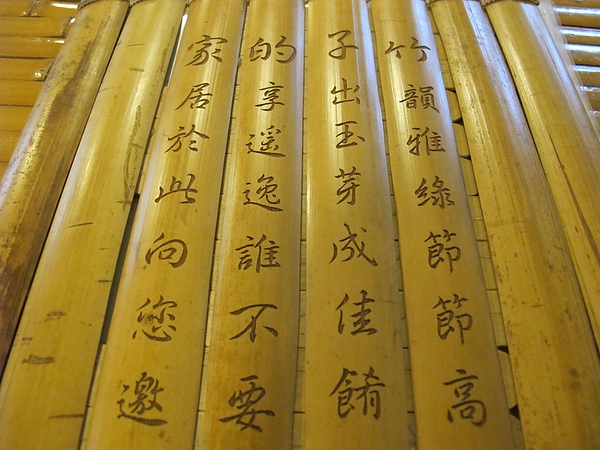 竹韻雅綠節節高
子出玉芽成佳餚
的享遥逸誰不要
家居於此向您邀